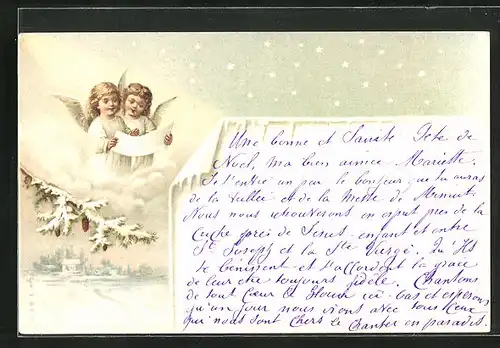 Une bonne et Sainte Fete de
Noël ma bien aimée Mariette.
Je t'envie un peu le bonheur que tu auras
de la veillée et de la Messe de Minuit.
Nous nous retrouverons en esprit près de la
Crèche près de Jésus-enfant et entre
St Joseph et la Ste Vierge. Qu'Ils
te bénissent et t'accordent la grâce
de leur être toujours fidèle. Chantons
de tout Cœur le Gloria ici-bas et espérons
qu'un jour nous irons avec tous ceux
qui nous sont chers le chanter en paradis.